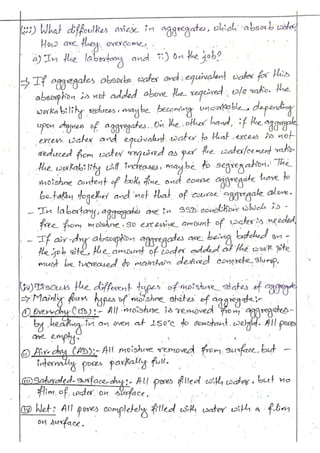 (iii) What difficulties arise in aggregates, which absorb water?
How are they overcome.
a) In the labortory and ii) on the job?
→ If aggregates absorbs water and equivalent water for this
absorption is not added above the required w/c ratio. the
workability reduces, maybe becoming unworkable, depending
upon degree of aggregates. On the other hand, if the aggregate
excess water and equivalent water to that excess is not
reduced from water required as per the water/cement ratio.
the workability will increases, maybe to segregation. The
moisture content of both fine and coarse aggregate have to
be taken together and not that of course aggregate alone.
- In labortory, aggregates are in SSD condition which is -
free from moisture. so excessive amount of water is needed.
- If air-dry absorption aggregates are being batched on -
the job site, the amount of water added at the work site
must be increased to maintain desired concrete slump.
(iv) Discuss the different types of moisture states of aggregate
→ Mainly four types of moisture states of aggregate:-
(i) Oven-dry (OD):- All moisture is removed from aggregates-
by heating in an oven at 150°C to constant weight. All pores
are empty.
(ii) Air-dry (AD):- All moisture removed from surface, but -
internally pores partially full.
(iii) Saturated-surface-dry:- All pores filled with water, but no
flim of water on surface.
(iv) Wet:- All pores completely filled with water with a film
on surface.